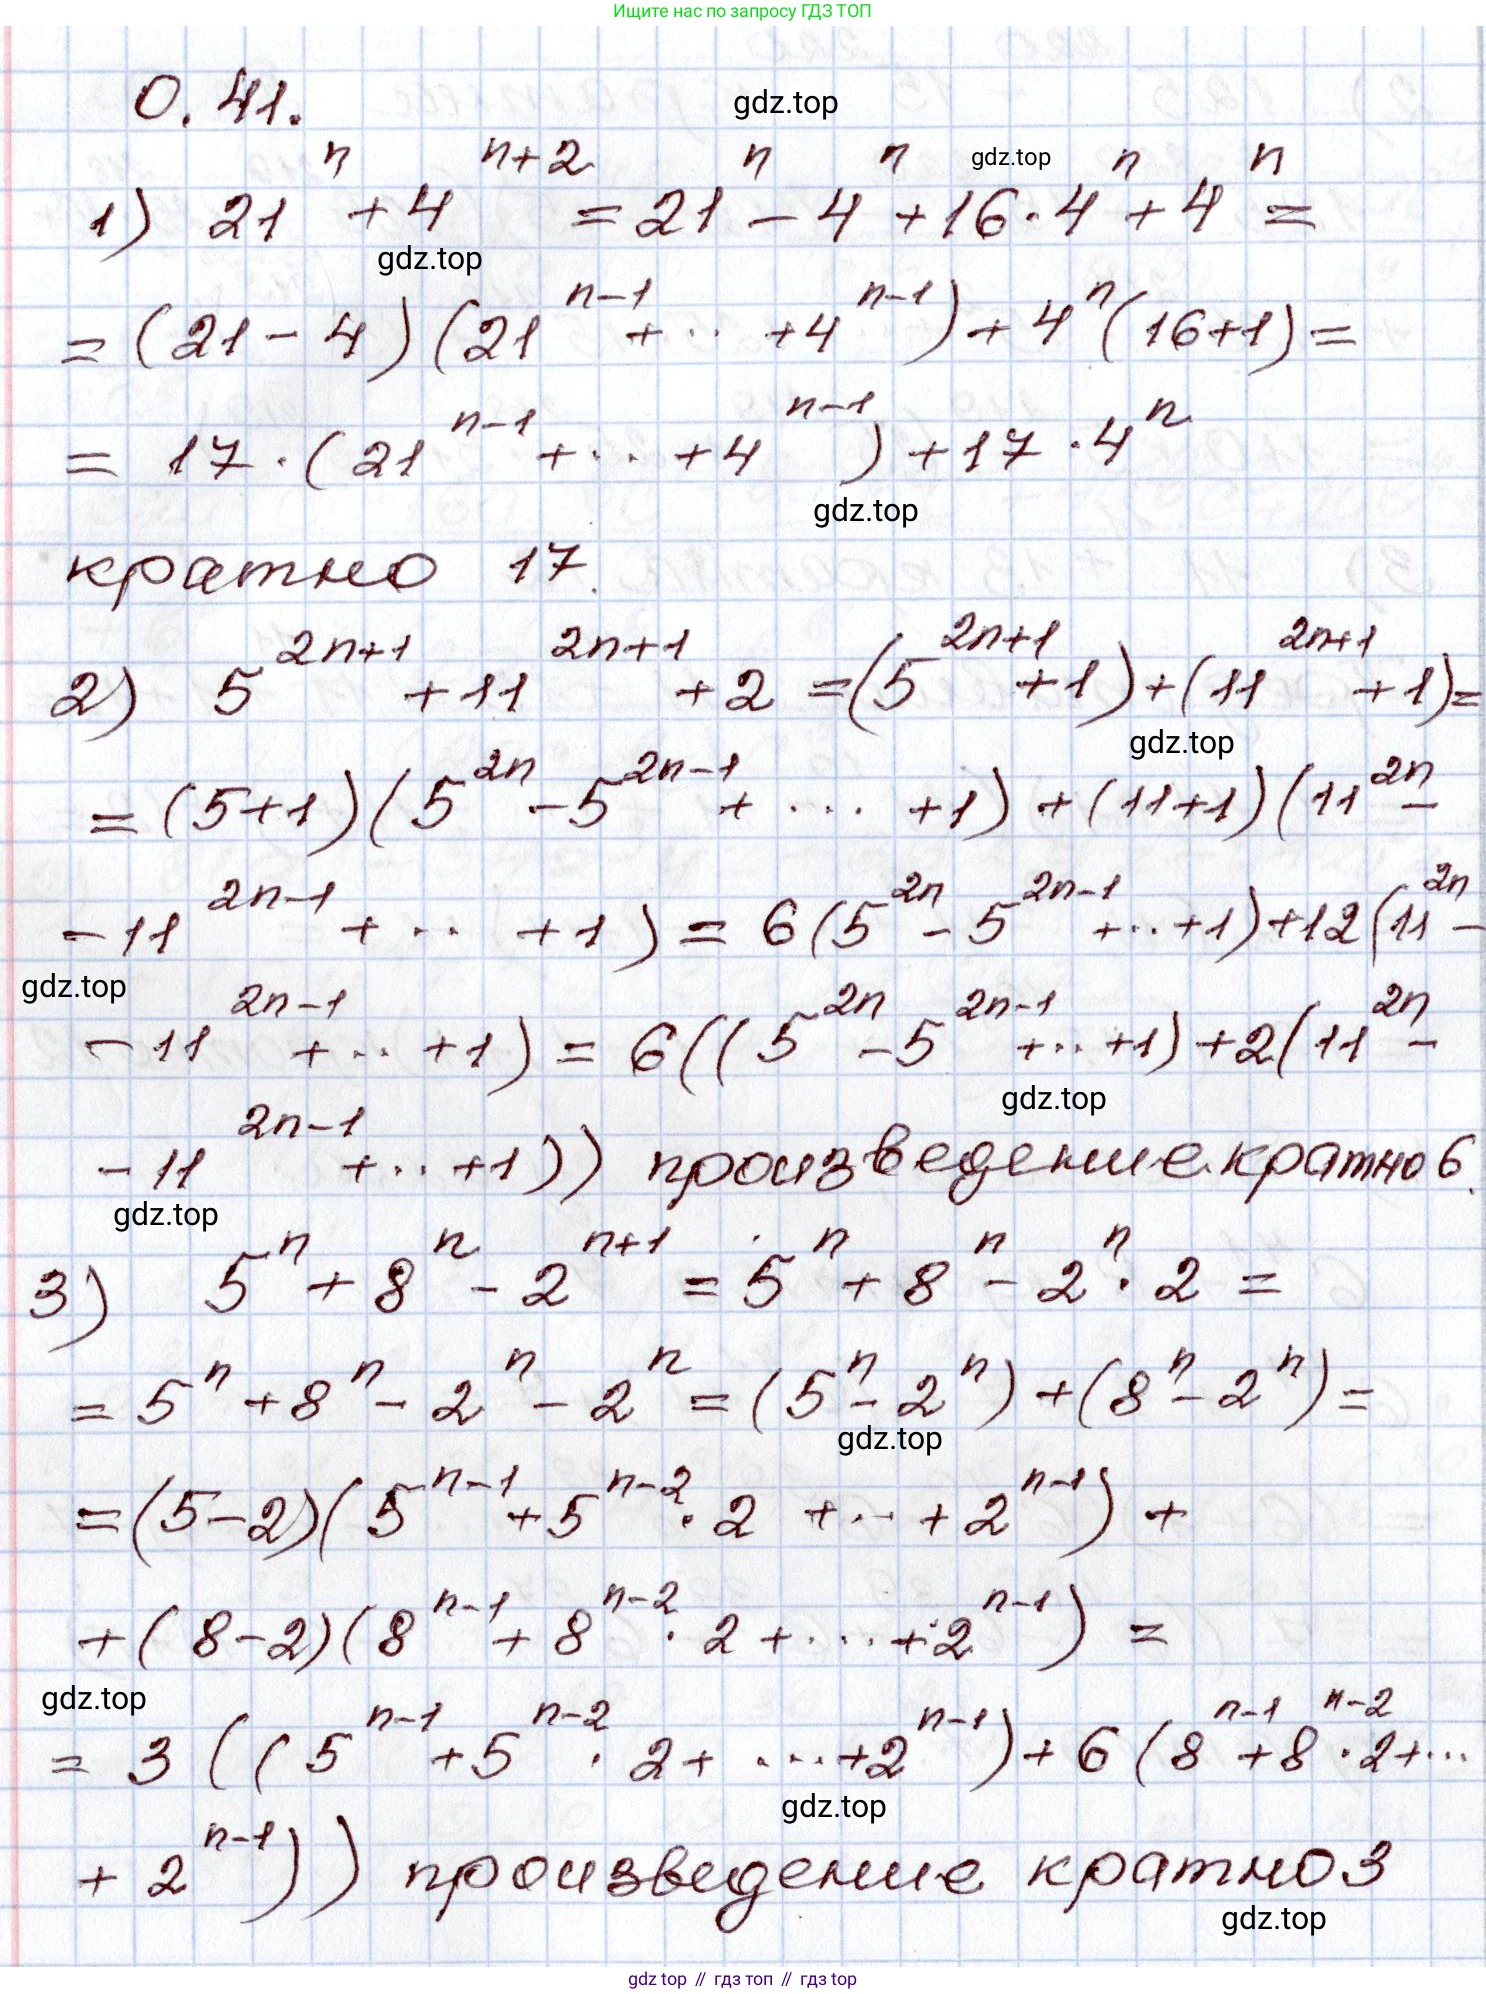 Ищите нас по запросу ГДЗ ТОП
0.41.
gdz.top
1) 21ⁿ + 4ⁿ⁺² = 21ⁿ − 4ⁿ + 16·4ⁿ + 4ⁿ =
gdz.top
gdz.top
= (21 − 4)(21ⁿ⁻¹ + ... + 4ⁿ⁻¹) + 4ⁿ(16+1) =
= 17·(21ⁿ⁻¹ + ... + 4ⁿ⁻¹) + 17·4ⁿ
gdz.top
кратно 17.
2) 5²ⁿ⁺¹ + 11²ⁿ⁺¹ + 2 = (5²ⁿ⁺¹ + 1) + (11²ⁿ⁺¹ + 1) =
gdz.top
= (5+1)(5²ⁿ − 5²ⁿ⁻¹ + .... + 1) + (11+1)(11²ⁿ −
− 11²ⁿ⁻¹ + ... + 1) = 6(5²ⁿ − 5²ⁿ⁻¹ + ... + 1) + 12(11²ⁿ −
gdz.top
− 11²ⁿ⁻¹ + ... + 1) = 6((5²ⁿ − 5²ⁿ⁻¹ + ... + 1) + 2(11²ⁿ −
gdz.top
− 11²ⁿ⁻¹ + ... + 1)) произведение кратно 6.
gdz.top
3) 5ⁿ + 8ⁿ − 2ⁿ⁺¹ = 5ⁿ + 8ⁿ − 2ⁿ·2 =
= 5ⁿ + 8ⁿ − 2ⁿ − 2ⁿ = (5ⁿ − 2ⁿ) + (8ⁿ − 2ⁿ) =
gdz.top
= (5−2)(5ⁿ⁻¹ + 5ⁿ⁻²·2 + ... + 2ⁿ⁻¹) +
+ (8−2)(8ⁿ⁻¹ + 8ⁿ⁻²·2 + .... + 2ⁿ⁻¹) =
gdz.top
= 3((5ⁿ⁻¹ + 5ⁿ⁻²·2 + .... + 2ⁿ⁻¹) + 6(8ⁿ⁻¹ + 8ⁿ⁻²·2 + ...
gdz.top
+ 2ⁿ⁻¹)) произведение кратно 3
gdz.top
gdz top // гдз топ // gdz top